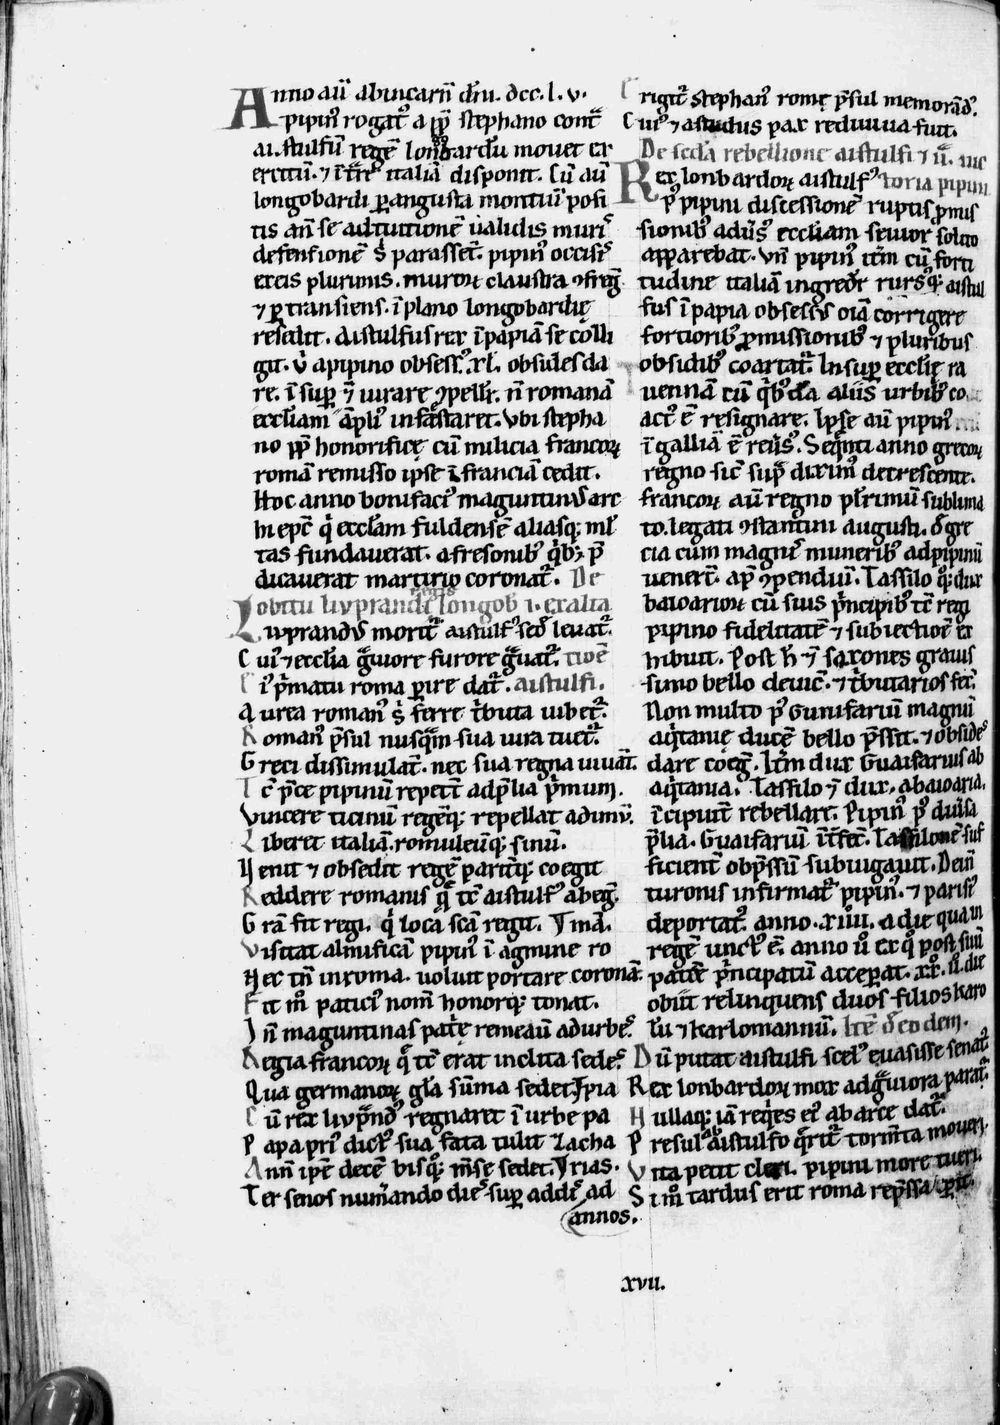 Anno aū ab incarñ dñi. dcc. l. v.
pipin᷒ rogat᷒ a pp̄ stephano cont̄
aistulfū regē longobardū mouet ex
ercitū. ⁊ īt̄r̄e italiā disponit. Cū aū
longobardi ꝑ angusta montiū posi
tis añ se ad tuitionē ualidis muri᷒
defensionē s̄ parasset. pipin᷒ occisi᷒
exeis plurimis. muroꝝ claustra ꝯfreḡ
⁊ ꝑtransiens. ī plano longobardię
resedit. Aistulfus rex ī papiā se colli
git. ů a pipino obsess᷒. xl. obsides da
re. ī sup̄ ⁊ iurare ꝯpellit᷒. ñ romanā
eccl̄iam āpli᷒ infestaret. Vbi stepha
no pp̄ honorificę cū milicia francoꝝ
romā remisso ipse ī franciā cedit.
Hoc anno bonifaci᷒ maguntin᷒ arc
hiepc̄ q̇ eccl̄am fuldensē aliasqꝫ ml̄
tas fundauerat. a fresonib᷒ q̇bꝫ p̄
dicauerat martirio coronat᷒. De
obitu liuprandi regis longob ⁊ exalta
Liuprand᷒ morit᷒ aistulf᷒ sed̄ leuat᷒.
Cui᷒ ⁊ eccl̄ia g̈uiore furore g̈uat᷒. tiōe
Cī p̄matu roma ꝑire dat᷒. aistulfi.
Aurea roman᷒ s̄ ferre t̄buta iubet᷒.
Roman᷒ p̄sul nusq̄m sua iura tuet᷒.
Greci dissimulat̄. nec sua regna iuuāt.
Tc̄ p̄ce pipinū repetit ad p̄lia p̄mum.
Vincere ticinū regēqꝫ repellat adimū.
Liberet italiā. romuleūqꝫ sinū.
Venit ⁊ obsedit regē parit̄qꝫ coegit
Reddere romanis q̄ tc̄ aistulf᷒ abeḡ.
Gr̄a fit regi. q̇ loca sc̄a regit.
Visitat almificā pipin᷒ ī agmine ro
Nec tn̄ in roma. uoluit portare coronā.
Fit m̊ patici᷒ nom̄ honorqꝫ tonat.
In maguntinas pat᷒e remeāū ad urbē.
Regia francoꝝ q̄ tc̄ erat inclita sedes.
Qua germanoꝝ gl̄a sūma sedet.
Cū rex liup̄nd᷒ regnaret ī urbe pa
Papa pri᷒ dict᷒ sua fata tulit zacha
Ann̄ ip̄e decē bisqꝫ m̄se sedet. ⁊ rias.
Ter senos num̄ando dies sup̄ addi᷒ ad
annos.
Erigit᷒ stephan᷒ romę p̄sul memorād᷒.
Cui᷒ ⁊ astudus pax rediuiua fuit.
De sc̄da rebellione aistulfi ⁊ ů. uic
Rex lonbardoꝝ aistulf᷒ toria pipini
p᷒ pipini discessionē ruptis ꝓmis
sionib᷒ adůs᷒ eccl̄iam seuior solito
apparebat. Vn̄ pipin᷒ it̄m cū forti
tudine italiā ingredit᷒ rursꝰqꝫ aistul
fus ī papia obsess᷒ oīa corrigere
fortiorib᷒ ꝓmissionib᷒ ⁊ pluribus
obsidib᷒ coartat᷒. In sup̄ eccl̄ię ra
uennā cū q̇bꝰdā aliis urbib᷒ co
act᷒ ē resignare. Ip̄se aū pipin᷒
ī galliā ē reůs᷒. Seq̄nti anno grecoꝝ
regno sic̄ sup̄ dixim᷒ decrescente.
francoꝝ aū regno pl᷒rimū sublima
to. legati ꝯstantini augusti. d̄ gre
cia cum magni᷒ munerib᷒ ad pipinū
venert̄. ap̄ ꝯpendiū. Tassilo q̊ꝫ dux
baioarioꝝ cū suis p̄ncipib᷒ tc̄ regi
pipino fidelitatē ⁊ subiectionē ex
hibuit. Post h̄ ⁊ saxones graius
simo bello deuic̄. ⁊ t̄butarios fec̄.
Non multo p᷒ Gunifariū magnū
aq̇tanię ducē bello p̄ssit. ⁊ obsides
dare coeḡ. It̄m dux Guaifarius ab
aq̇tania. Tassilo ⁊ dux. a baioaria.
īcipiūt rebellare. Pipin᷒ p᷒ diůsa
p̄lia. Guaifariū īt̄fec̄. Tassilonē suf
ficient̄ obp̄ssū subiugauit. Dein̄
turonis infirmat᷒ pipin᷒. ⁊ parisi᷒
deportat᷒. anno. xiiii. a die qua in
regē unct᷒ ē. anno ů ex q̊ post suū
patrē p̄ncipatū acceperat. xx. ii. die
obiit relinquens duos filios karo
lū ⁊ karlomannū. Itē d̄ eodem.
Dū putat aistulfi scel᷒ euasisse senat᷒
Rex lonbardoꝝ mox ad g̈uiora parat᷒.
Nullaqꝫ iā req̇es ei᷒ ab arce dat᷒.
Presul ab aistulfo q̄rit᷒ torm̄ta moueri.
Vita petit cleri. pipini more tueri.
Si m̊ tardus erit roma rep̄ssa ꝑit.
xvii.